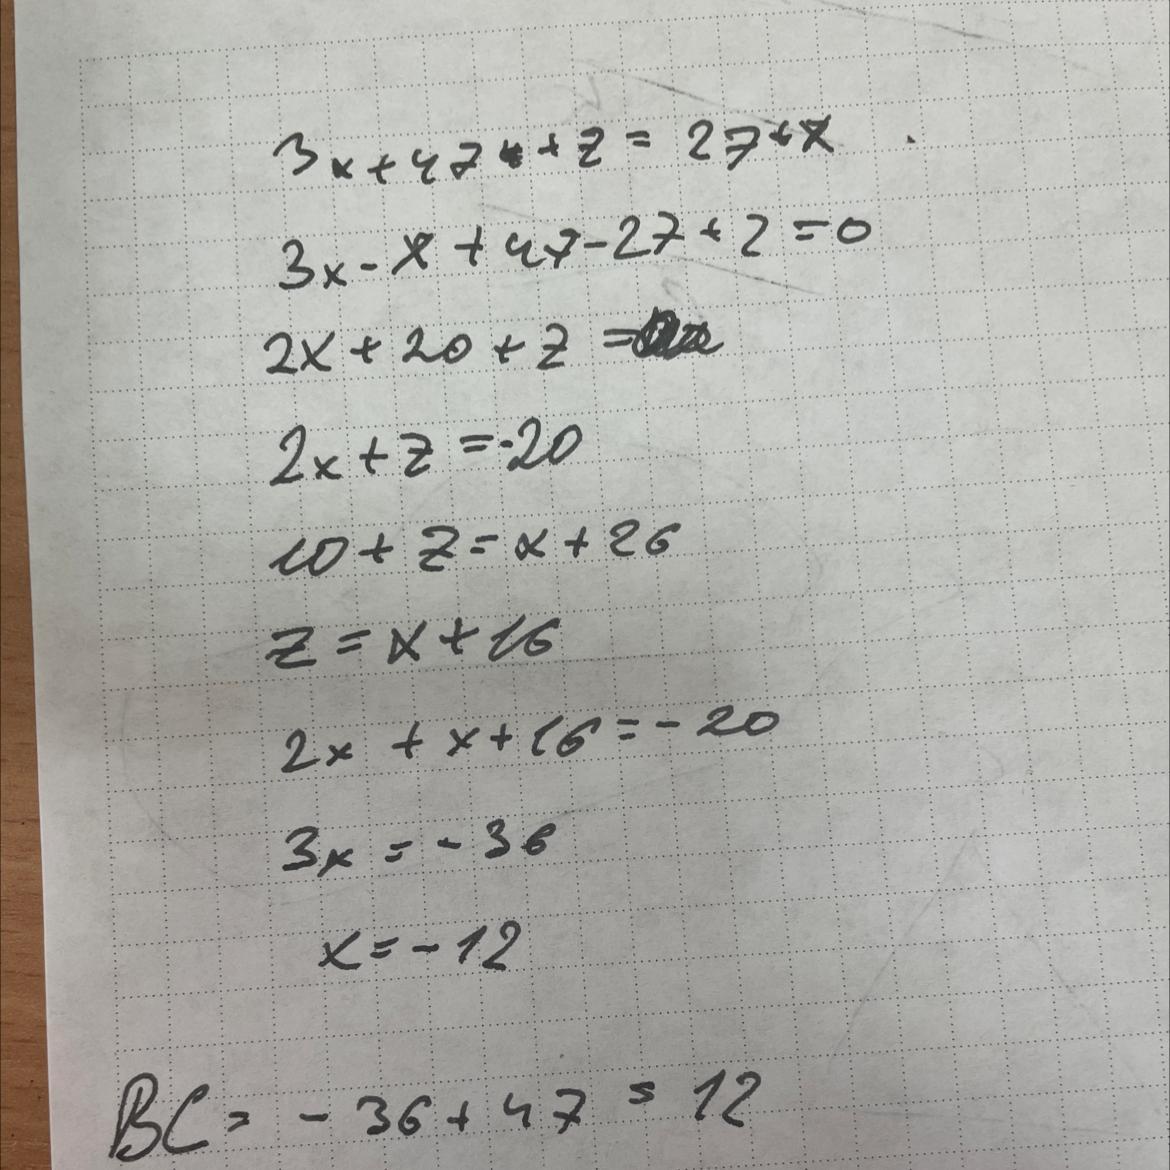 3x + 47 + z = 27 + x
3x - x + 47 - 27 + z = 0
2x + 20 + z =
2x + z = -20
10 + z = x + 26
z = x + 16
2x + x + 16 = - 20
3x = - 36
x = - 12
BC = - 36 + 47 = 12